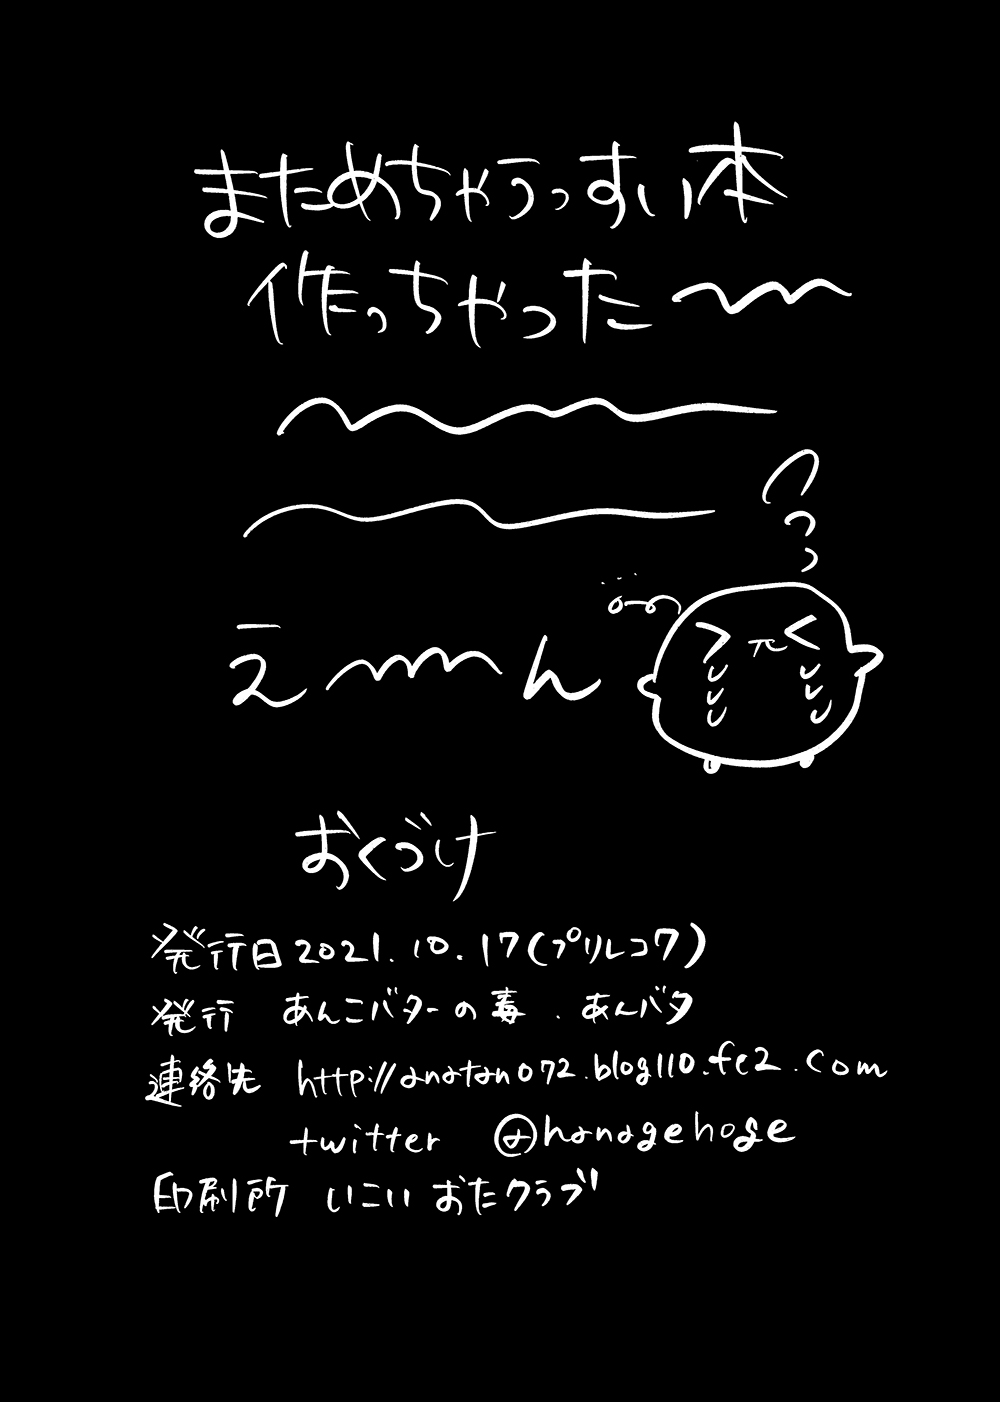 まためちゃうっすい本
作っちゃった〜〜
え〜〜ん
おくづけ
発行日 2021.10.17(プリレコ7)
発行 あんこバターの毒.あんバタ
連絡先 http://anatan072.blog110.fc2.com
twitter @hanagehoge
印刷所 いこい おたクラブ